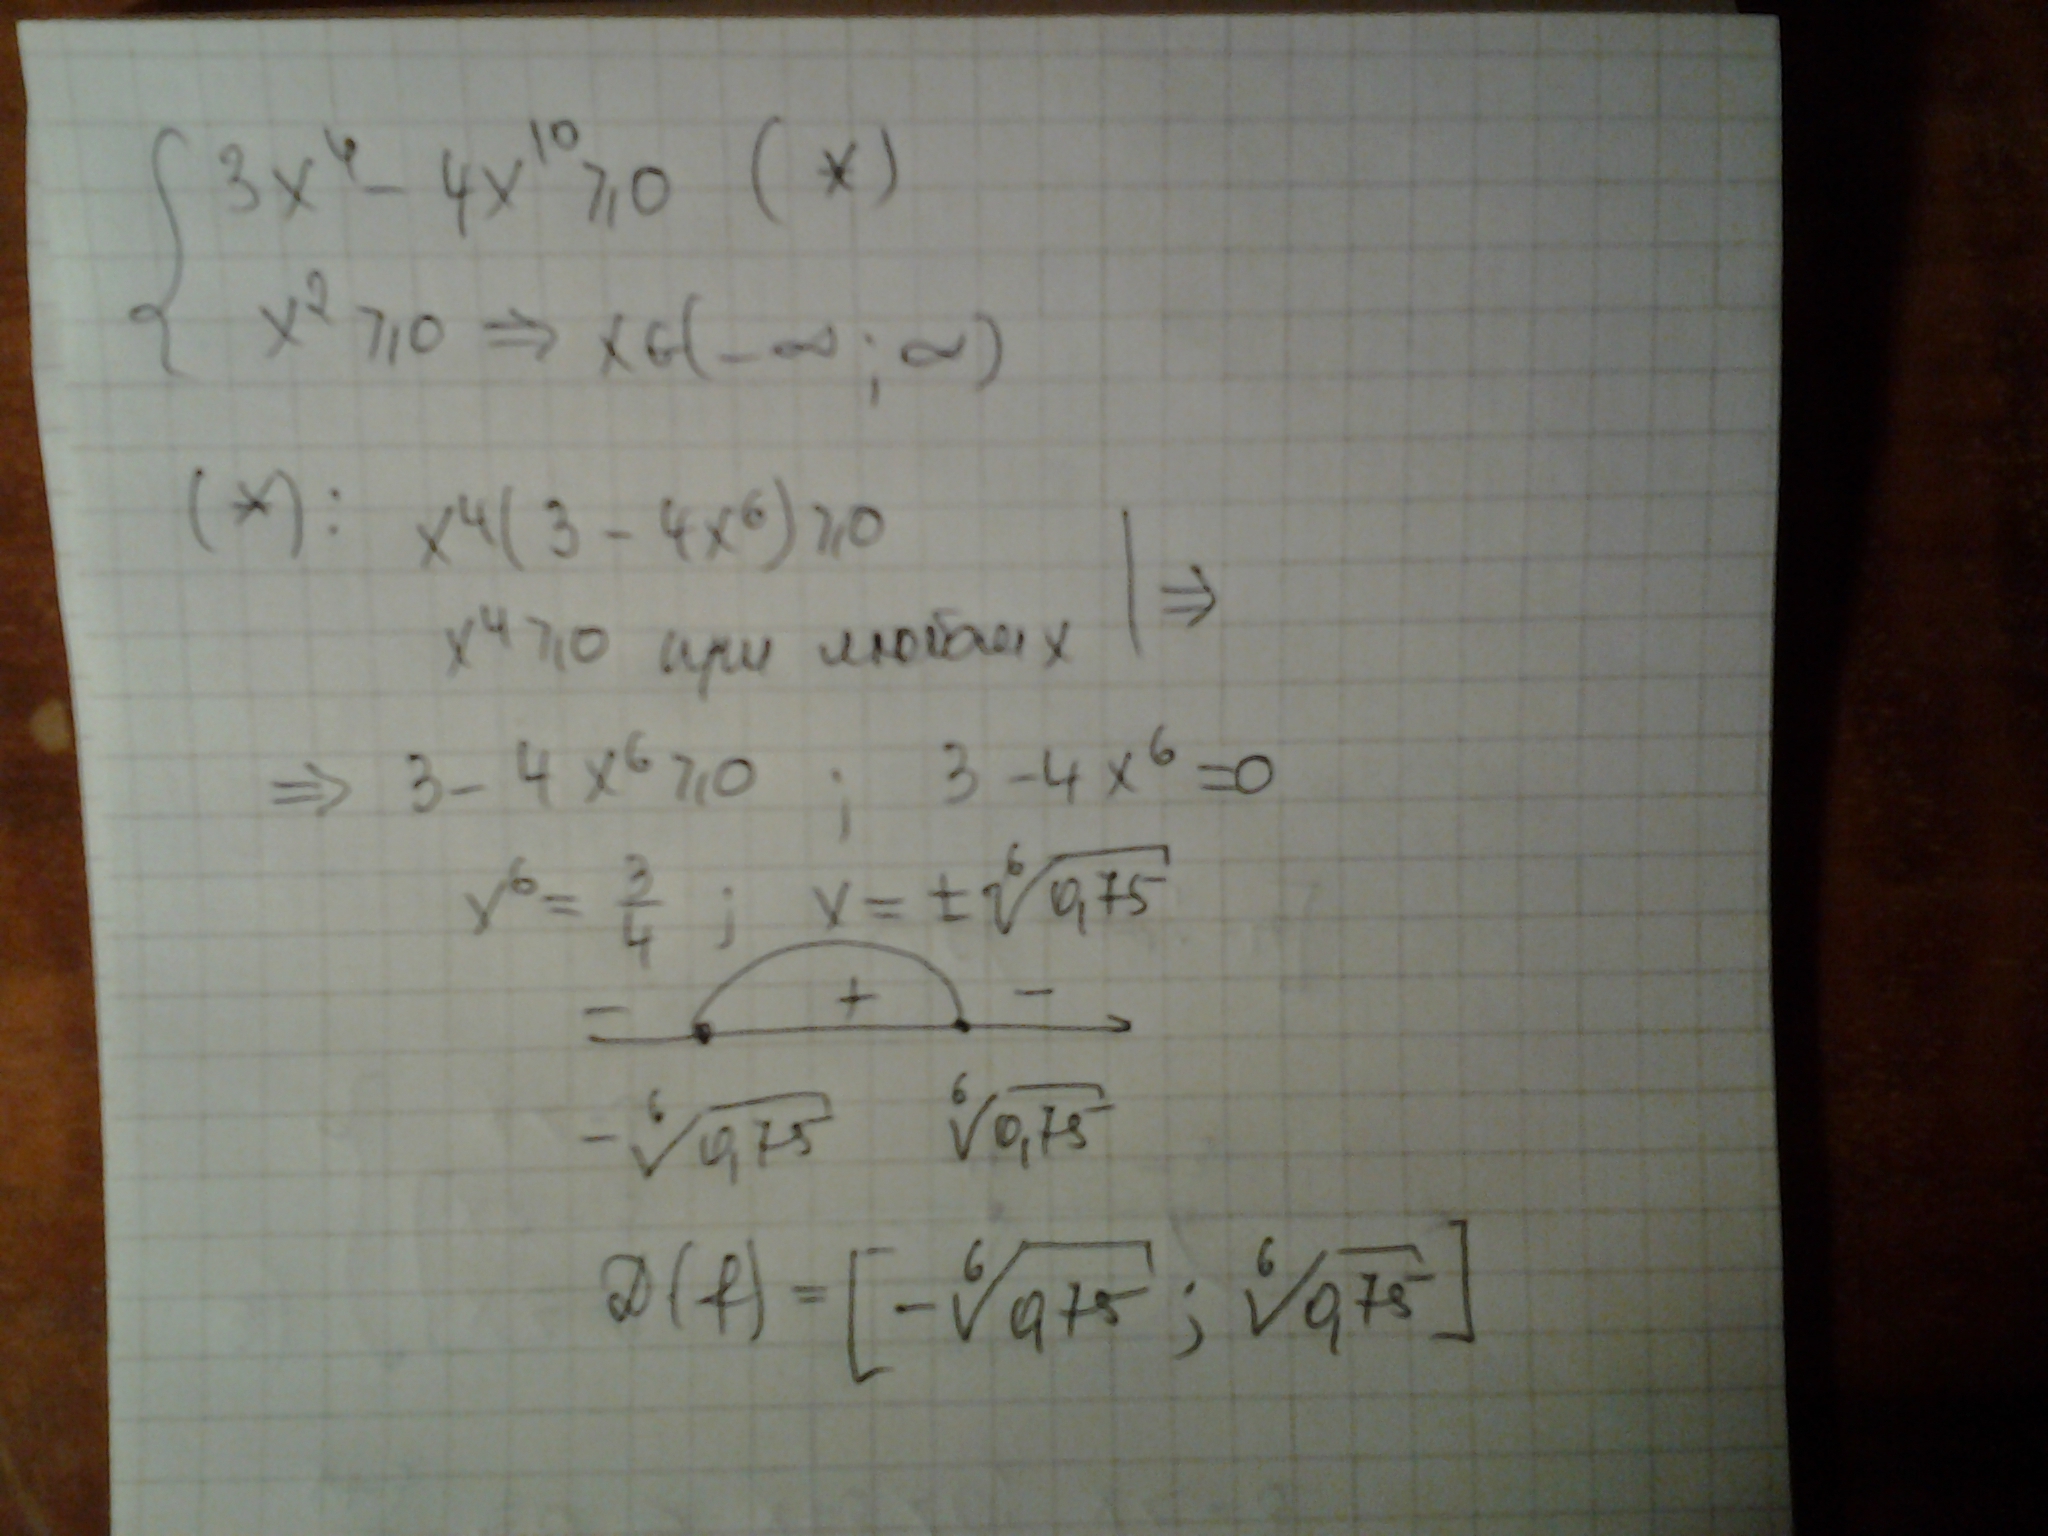 { 3x⁴ - 4x¹⁰ ≥ 0 (*)
x² ≥ 0 ⇒ x ∈ (-∞; ∞)
(*): x⁴(3 - 4x⁶) ≥ 0
x⁴ ≥ 0 при любых x | ⇒
⇒ 3 - 4x⁶ ≥ 0 ; 3 - 4x⁶ = 0
x⁶ = 3/4 ; x = ±⁶√0,75
- + -
-⁶√0,75 ⁶√0,75
D(f) = [-⁶√0,75 ; ⁶√0,75]